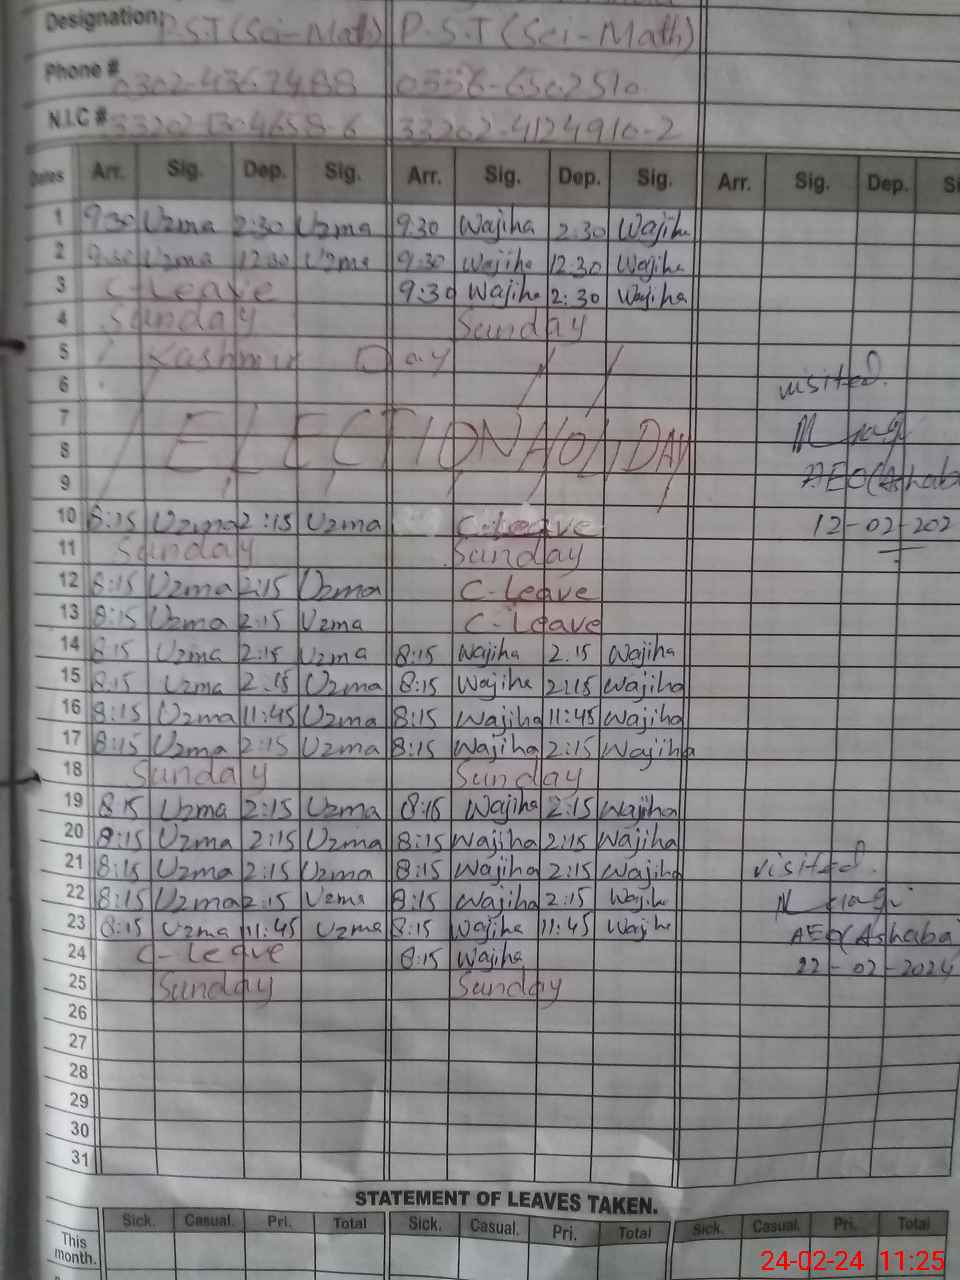 Designation: P.S.T (Sci-Math) P.S.T (Sci-Math)
Phone # 0302-4367488
N.I.C # 33202-4124910-2
Dates Arr. Sig. Dep. Sig. Arr. Sig. Dep. Sig. Arr. Sig. Dep.
1 9:30 Uzma 2:30 Uzma 9:30 Wajiha 2:30 Wajiha
2 9:30 Uzma 12:30 Uzma 9:30 Wajiha 12:30 Wajiha
3 C-Leave 9:30 Wajiha 2:30 Wajiha
4 Sunday Sunday
5 Kashmir Day
6 visited.
7
8 ELECTION HOLIDAY
9 AEO(Ashaba
10 8:15 Uzma 2:15 Uzma C-Leave 12-02-202
11 Sunday Sunday
12 8:15 Uzma 2:15 Uzma C-Leave
13 8:15 Uzma 2:15 Uzma C-Leave
14 8:15 Uzma 2:15 Uzma 8:15 Wajiha 2.15 Wajiha
15 8:15 Uzma 2:15 Uzma 8:15 Wajiha 2:15 Wajiha
16 8:15 Uzma 11:45 Uzma 8:15 Wajiha 11:45 Wajiha
17 8:15 Uzma 2:15 Uzma 8:15 Wajiha 2:15 Wajiha
18 Sunday Sunday
19 8:15 Uzma 2:15 Uzma 8:15 Wajiha 2:15 Wajiha
20 8:15 Uzma 2:15 Uzma 8:15 Wajiha 2:15 Wajiha
21 8:15 Uzma 2:15 Uzma 8:15 Wajiha 2:15 Wajiha visited.
22 8:15 Uzma 2:15 Uzma 8:15 Wajiha 2:15 Wajiha
23 8:15 Uzma 11:45 Uzma 8:15 Wajiha 11:45 Wajiha AEO(Ashaba
24 C-Leave 8:15 Wajiha 22-02-2024
25 Sunday Sunday
26
27
28
29
30
31
STATEMENT OF LEAVES TAKEN.
Sick. Casual. Pri. Total Sick. Casual. Pri. Total Sick. Casual. Pri. Total
This
month.
24-02-24 11:25